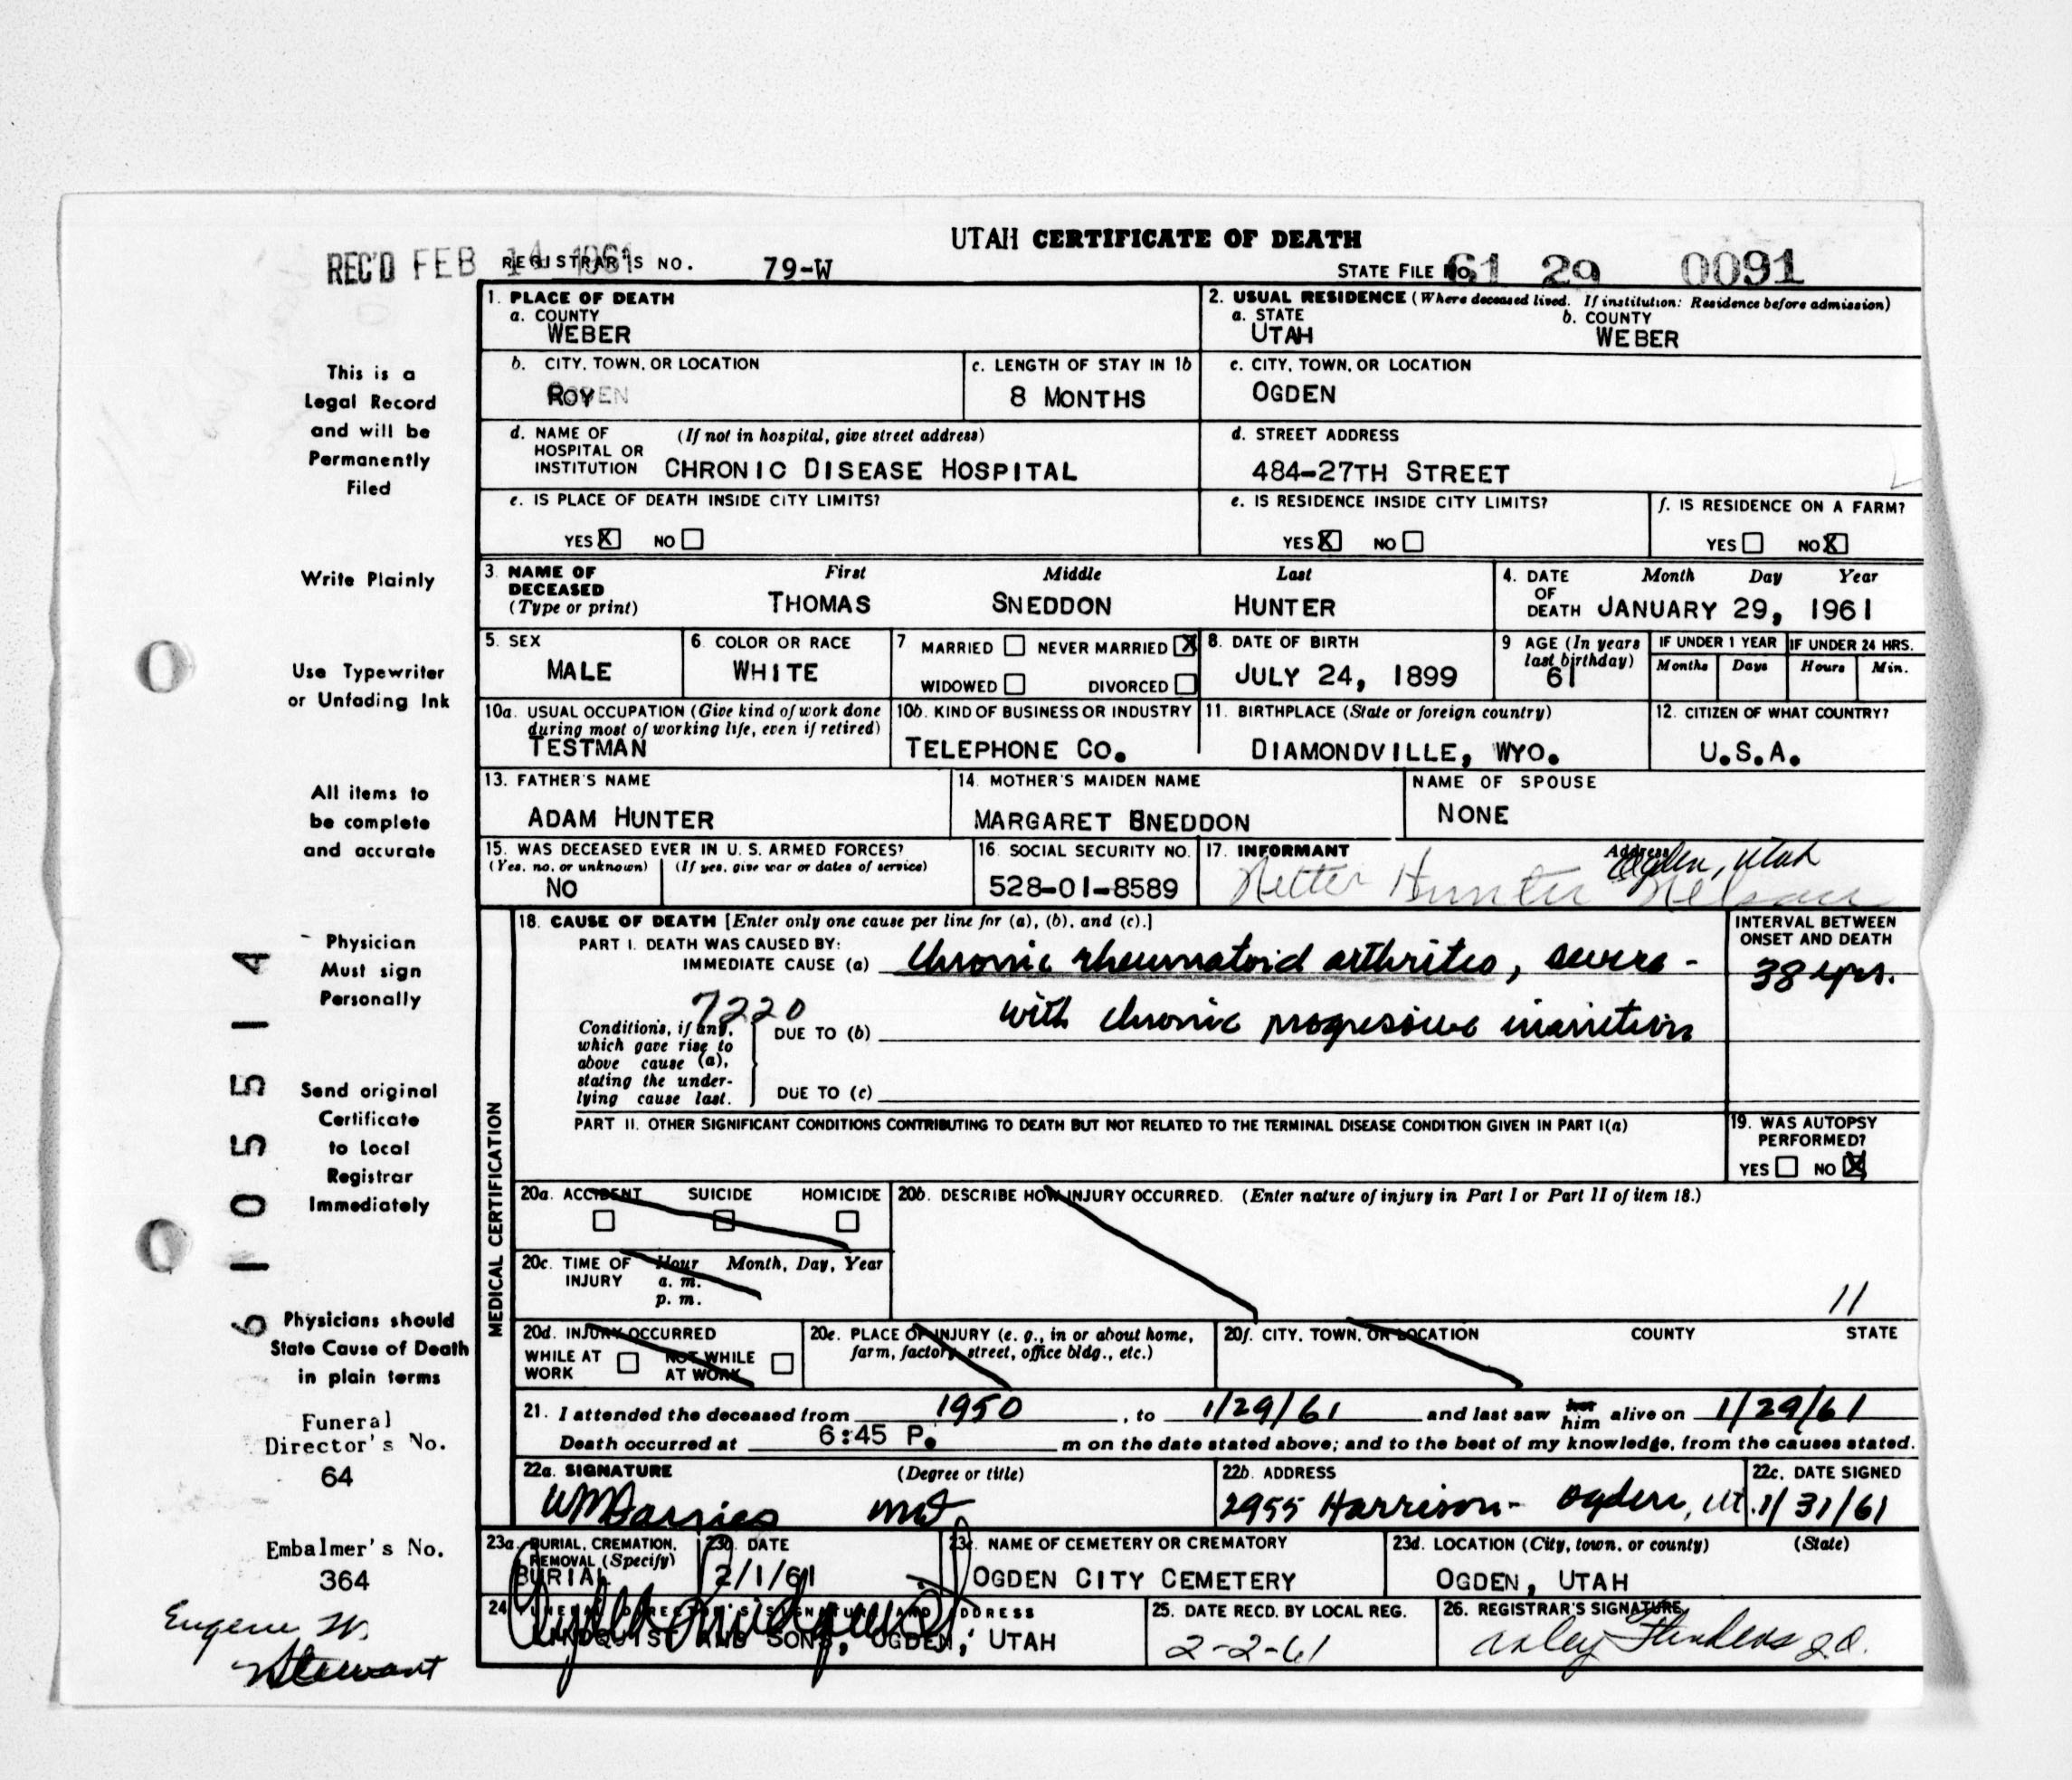 UTAH CERTIFICATE OF DEATH
REC'D FEB 14 1961 REGISTRAR'S NO. 79-W STATE FILE NO. 61 29 0091
1. PLACE OF DEATH
a. COUNTY
WEBER
2. USUAL RESIDENCE (Where deceased lived. If institution: Residence before admission)
a. STATE b. COUNTY
UTAH WEBER
b. CITY, TOWN, OR LOCATION
ROY
c. LENGTH OF STAY IN 1b
8 MONTHS
c. CITY, TOWN, OR LOCATION
OGDEN
d. NAME OF (If not in hospital, give street address)
HOSPITAL OR
INSTITUTION CHRONIC DISEASE HOSPITAL
d. STREET ADDRESS
484-27TH STREET
e. IS PLACE OF DEATH INSIDE CITY LIMITS?
YES X NO
e. IS RESIDENCE INSIDE CITY LIMITS?
YES X NO
f. IS RESIDENCE ON A FARM?
YES NO X
3. NAME OF DECEASED (Type or print)
First Middle Last
THOMAS SNEDDON HUNTER
4. DATE OF DEATH
Month Day Year
JANUARY 29, 1961
5. SEX
MALE
6. COLOR OR RACE
WHITE
7 MARRIED NEVER MARRIED X
WIDOWED DIVORCED
8. DATE OF BIRTH
JULY 24, 1899
9 AGE (In years last birthday)
61
IF UNDER 1 YEAR IF UNDER 24 HRS.
Months Days Hours Min.
10a. USUAL OCCUPATION (Give kind of work done
during most of working life, even if retired)
TESTMAN
10b. KIND OF BUSINESS OR INDUSTRY
TELEPHONE CO.
11. BIRTHPLACE (State or foreign country)
DIAMONDVILLE, WYO.
12. CITIZEN OF WHAT COUNTRY?
U.S.A.
13. FATHER'S NAME
ADAM HUNTER
14. MOTHER'S MAIDEN NAME
MARGARET SNEDDON
NAME OF SPOUSE
NONE
15. WAS DECEASED EVER IN U. S. ARMED FORCES?
(Yes, no, or unknown) (If yes, give war or dates of service)
NO
16. SOCIAL SECURITY NO.
528-01-8589
17. INFORMANT Address
Ogden, Utah
Hunter Nelson
MEDICAL CERTIFICATION
18. CAUSE OF DEATH [Enter only one cause per line for (a), (b), and (c).]
PART I. DEATH WAS CAUSED BY:
IMMEDIATE CAUSE (a) Chronic rheumatoid arthritis, severe -
INTERVAL BETWEEN
ONSET AND DEATH
38 yrs.
7220
Conditions, if any,
which gave rise to
above cause (a),
stating the under-
lying cause last.
DUE TO (b) with chronic progressive inanition
DUE TO (c)
PART II. OTHER SIGNIFICANT CONDITIONS CONTRIBUTING TO DEATH BUT NOT RELATED TO THE TERMINAL DISEASE CONDITION GIVEN IN PART I(a)
19. WAS AUTOPSY
PERFORMED?
YES NO X
20a. ACCIDENT SUICIDE HOMICIDE
20b. DESCRIBE HOW INJURY OCCURRED. (Enter nature of injury in Part I or Part II of item 18.)
20c. TIME OF INJURY
Hour Month, Day, Year
a. m.
p. m.
11
20d. INJURY OCCURRED
WHILE AT WORK NOT WHILE AT WORK
20e. PLACE OF INJURY (e. g., in or about home,
farm, factory, street, office bldg., etc.)
20f. CITY, TOWN, OR LOCATION COUNTY STATE
21. I attended the deceased from 1950, to 1/29/61 and last saw her him alive on 1/29/61
Death occurred at 6:45 P. m on the date stated above; and to the best of my knowledge, from the causes stated.
22a. SIGNATURE (Degree or title)
MD
22b. ADDRESS
2955 Harrison - Ogden, Ut.
22c. DATE SIGNED
1/31/61
23a. BURIAL, CREMATION,
REMOVAL (Specify)
BURIAL
23b. DATE
2/1/61
23c. NAME OF CEMETERY OR CREMATORY
OGDEN CITY CEMETERY
23d. LOCATION (City, town, or county) (State)
OGDEN, UTAH
24 FUNERAL DIRECTOR'S SIGNATURE AND ADDRESS
LINDQUIST AND SONS, OGDEN, UTAH
25. DATE RECD. BY LOCAL REG.
2-2-61
26. REGISTRAR'S SIGNATURE
This is a
Legal Record
and will be
Permanently
Filed
Write Plainly
Use Typewriter
or Unfading Ink
All items to
be complete
and accurate
Physician
Must sign
Personally
Send original
Certificate
to Local
Registrar
Immediately
Physicians should
State Cause of Death
in plain terms
Funeral
Director's No.
64
Embalmer's No.
364
Eugene W.
Stewart
6105514